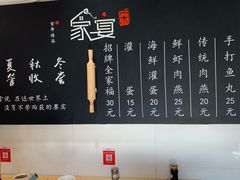 家宴
百年传承
一家
招牌全家福 30元
灌蛋 15元
海鲜灌蛋 20元
鲜虾肉燕 25元
传统肉燕 20元
手打鱼丸 25元
夏管
秋收
冬尝
在这世界上
没有不带雨莪的果实